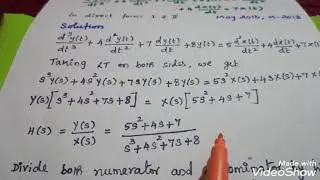 in direct form I & II May 2018, N-2018
Solution
d³y(t)/dt³ + 4 d²y(t)/dt² + 7 dy(t)/dt + 8y(t) = 5 d²x(t)/dt² + 4 dx(t)/dt + 7x(t)
Taking LT on both sides, we get
s³Y(s) + 4s²Y(s) + 7sY(s) + 8Y(s) = 5s²X(s) + 4sX(s) + 7X(s)
Y(s)[s³+4s²+7s+8] = X(s)[5s²+4s+7]
H(s) = Y(s)/X(s) = 5s²+4s+7/s³+4s²+7s+8
Divide both numerator and
Made with
VideoShow